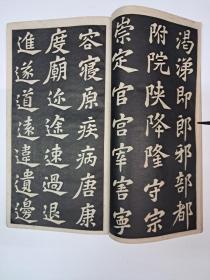 渴涕即郎邪部都
附院陝降隆守宗
崇定官宫宰害寧
容寝原疾病唐康
度廟迩途速過退
進遂道遠違遺邊